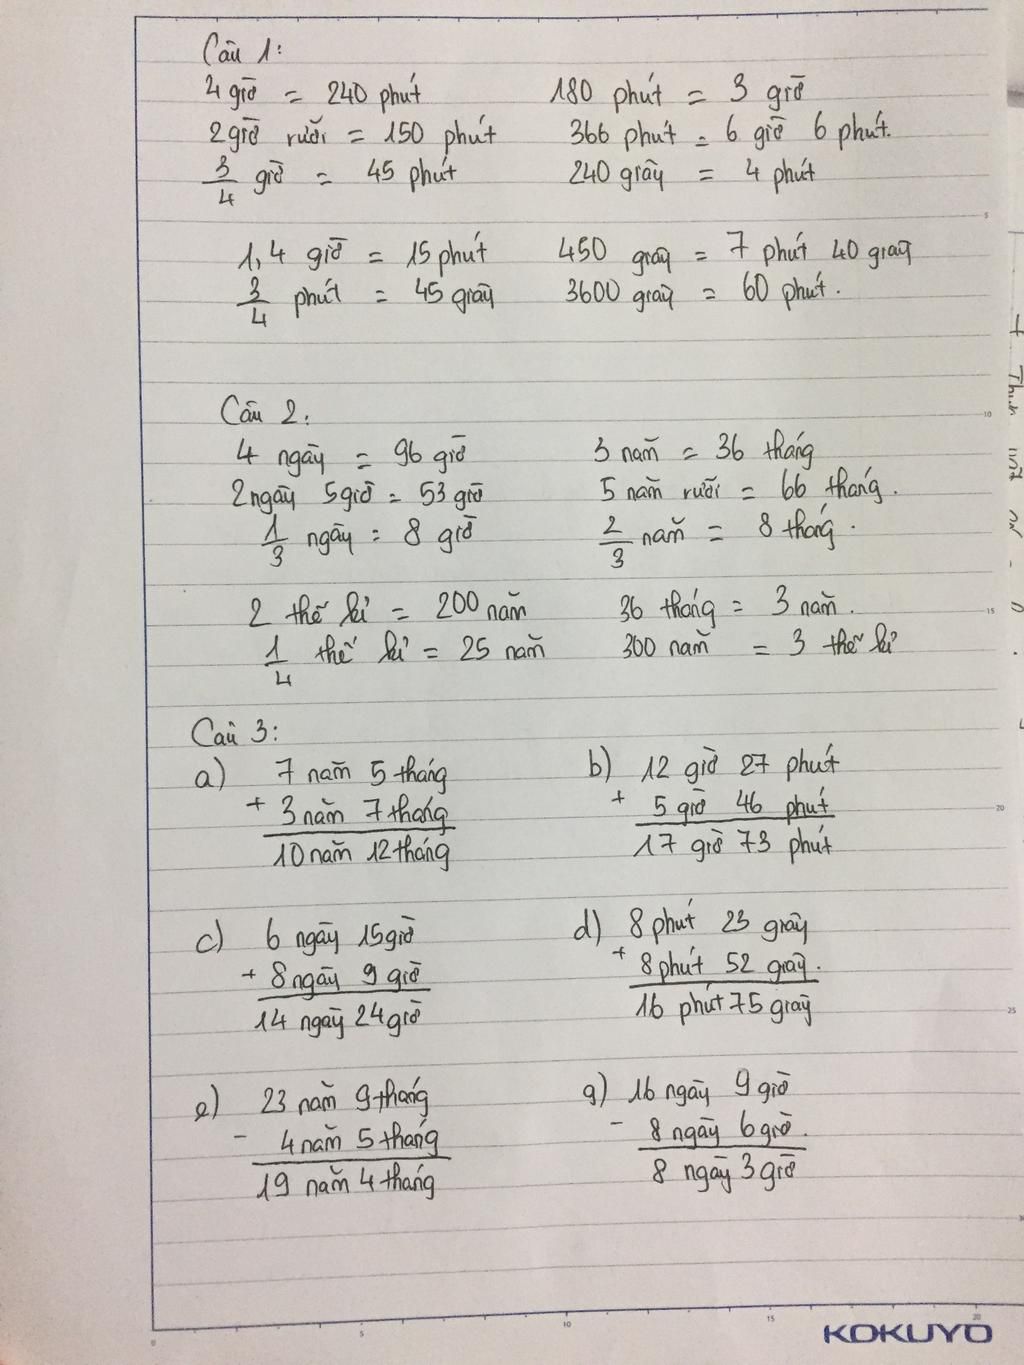 Câu 1:
4 giờ = 240 phút 180 phút = 3 giờ
2 giờ rưỡi = 150 phút 366 phút = 6 giờ 6 phút.
3/4 giờ = 45 phút 240 giây = 4 phút
1,4 giờ = 15 phút 450 giây = 7 phút 40 giây
3/4 phút = 45 giây 3600 giây = 60 phút.
Câu 2:
4 ngày = 96 giờ 3 năm = 36 tháng
2 ngày 5 giờ = 53 giờ 5 năm rưỡi = 66 tháng.
1/3 ngày = 8 giờ 2/3 năm = 8 tháng.
2 thế kỉ = 200 năm 36 tháng = 3 năm.
1/4 thế kỉ = 25 năm 300 năm = 3 thế kỉ
Câu 3:
a) 7 năm 5 tháng b) 12 giờ 27 phút
+ 3 năm 7 tháng + 5 giờ 46 phút
10 năm 12 tháng 17 giờ 73 phút
c) 6 ngày 15 giờ d) 8 phút 23 giây
+ 8 ngày 9 giờ + 8 phút 52 giây.
14 ngày 24 giờ 16 phút 75 giây
e) 23 năm 9 tháng g) 16 ngày 9 giờ
- 4 năm 5 tháng - 8 ngày 6 giờ.
19 năm 4 tháng 8 ngày 3 giờ
KOKUYO